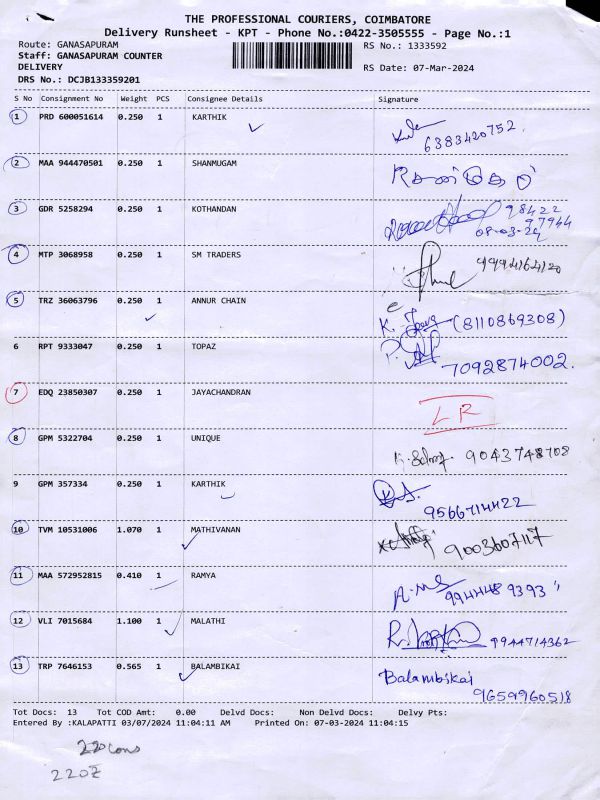 THE PROFESSIONAL COURIERS, COIMBATORE
Delivery Runsheet - KPT - Phone No.:0422-3505555 - Page No.:1
Route: GANASAPURAM
RS No.: 1333592
Staff: GANASAPURAM COUNTER
DELIVERY
RS Date: 07-Mar-2024
DRS No.: DCJB133359201
S No Consignment No Weight PCS Consignee Details Signature
1 PRD 600051614 0.250 1 KARTHIK
6383420752.
2 MAA 944470501 0.250 1 SHANMUGAM
3 GDR 5258294 0.250 1 KOTHANDAN
98422
97944
08-03-24
4 MTP 3068958 0.250 1 SM TRADERS
5 TRZ 36063796 0.250 1 ANNUR CHAIN
(8110869308)
6 RPT 9333047 0.250 1 TOPAZ
7092874002.
7 EDQ 23850307 0.250 1 JAYACHANDRAN
LR
8 GPM 5322704 0.250 1 UNIQUE
9043748708
9 GPM 357334 0.250 1 KARTHIK
9566714422
10 TVM 10531006 1.070 1 MATHIVANAN
9003607117
11 MAA 572952815 0.410 1 RAMYA
9944489393
12 VLI 7015684 1.100 1 MALATHI
9944714362
13 TRP 7646153 0.565 1 BALAMBIKAI
Balambikai
9659960518
Tot Docs: 13 Tot COD Amt: 0.00 Delvd Docs: Non Delvd Docs: Delvy Pts:
Entered By :KALAPATTI 03/07/2024 11:04:11 AM Printed On: 07-03-2024 11:04:15